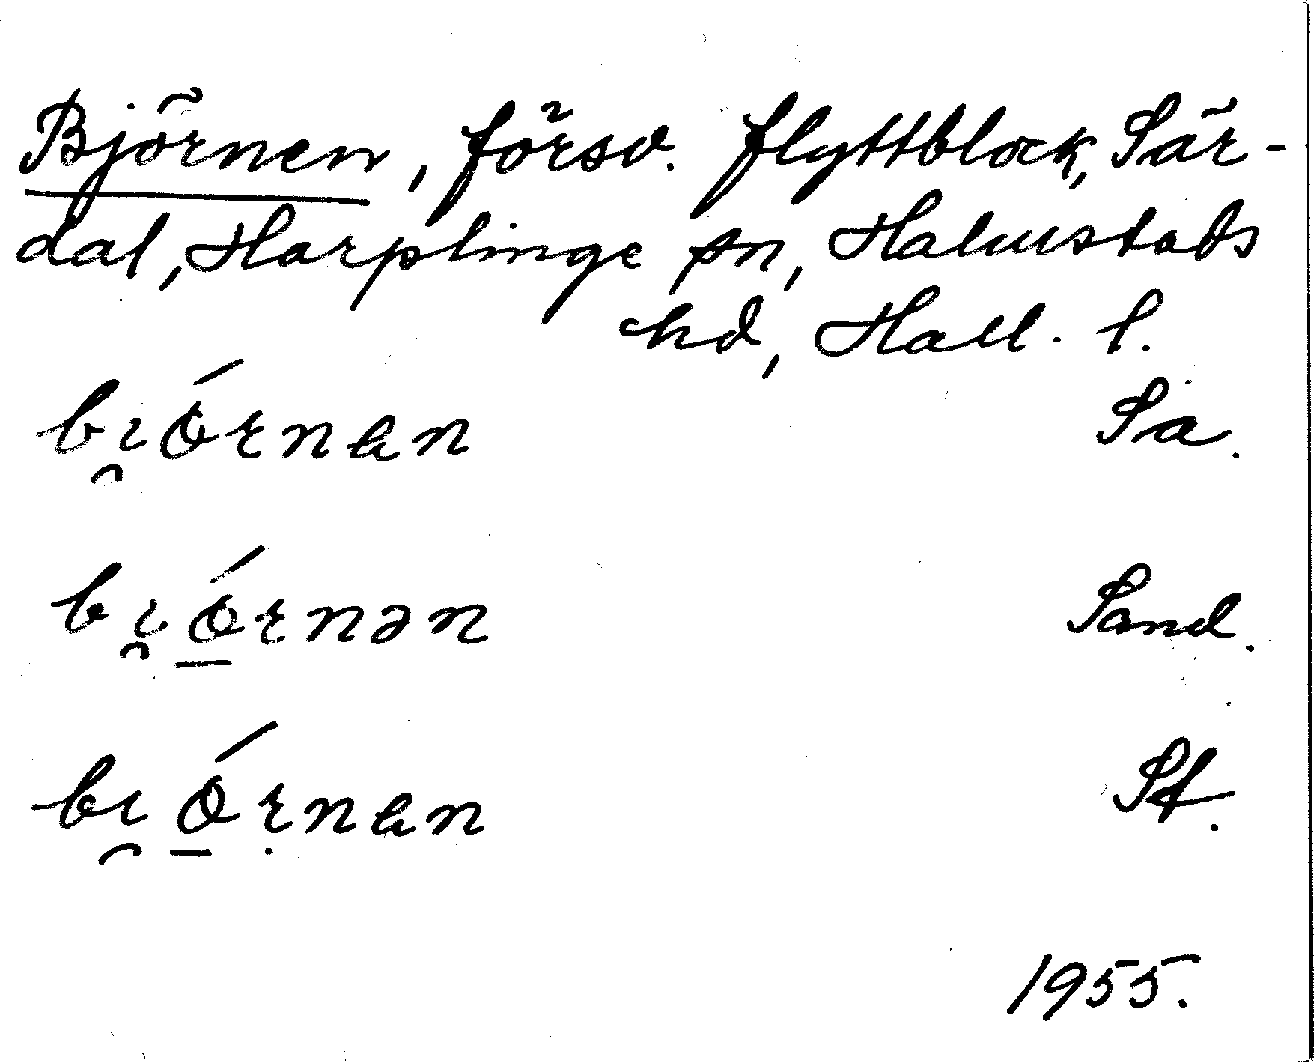 Björnen, försv. flyttblock, Sär-
dal, Harplinge sn, Halmstads
hd, Hall. l.
bı̯ǿrnɐn Sa.
bı̯ǿ̠rnən Sand.
bı̯ǿ̠ṛnɐn Sf.
1955.